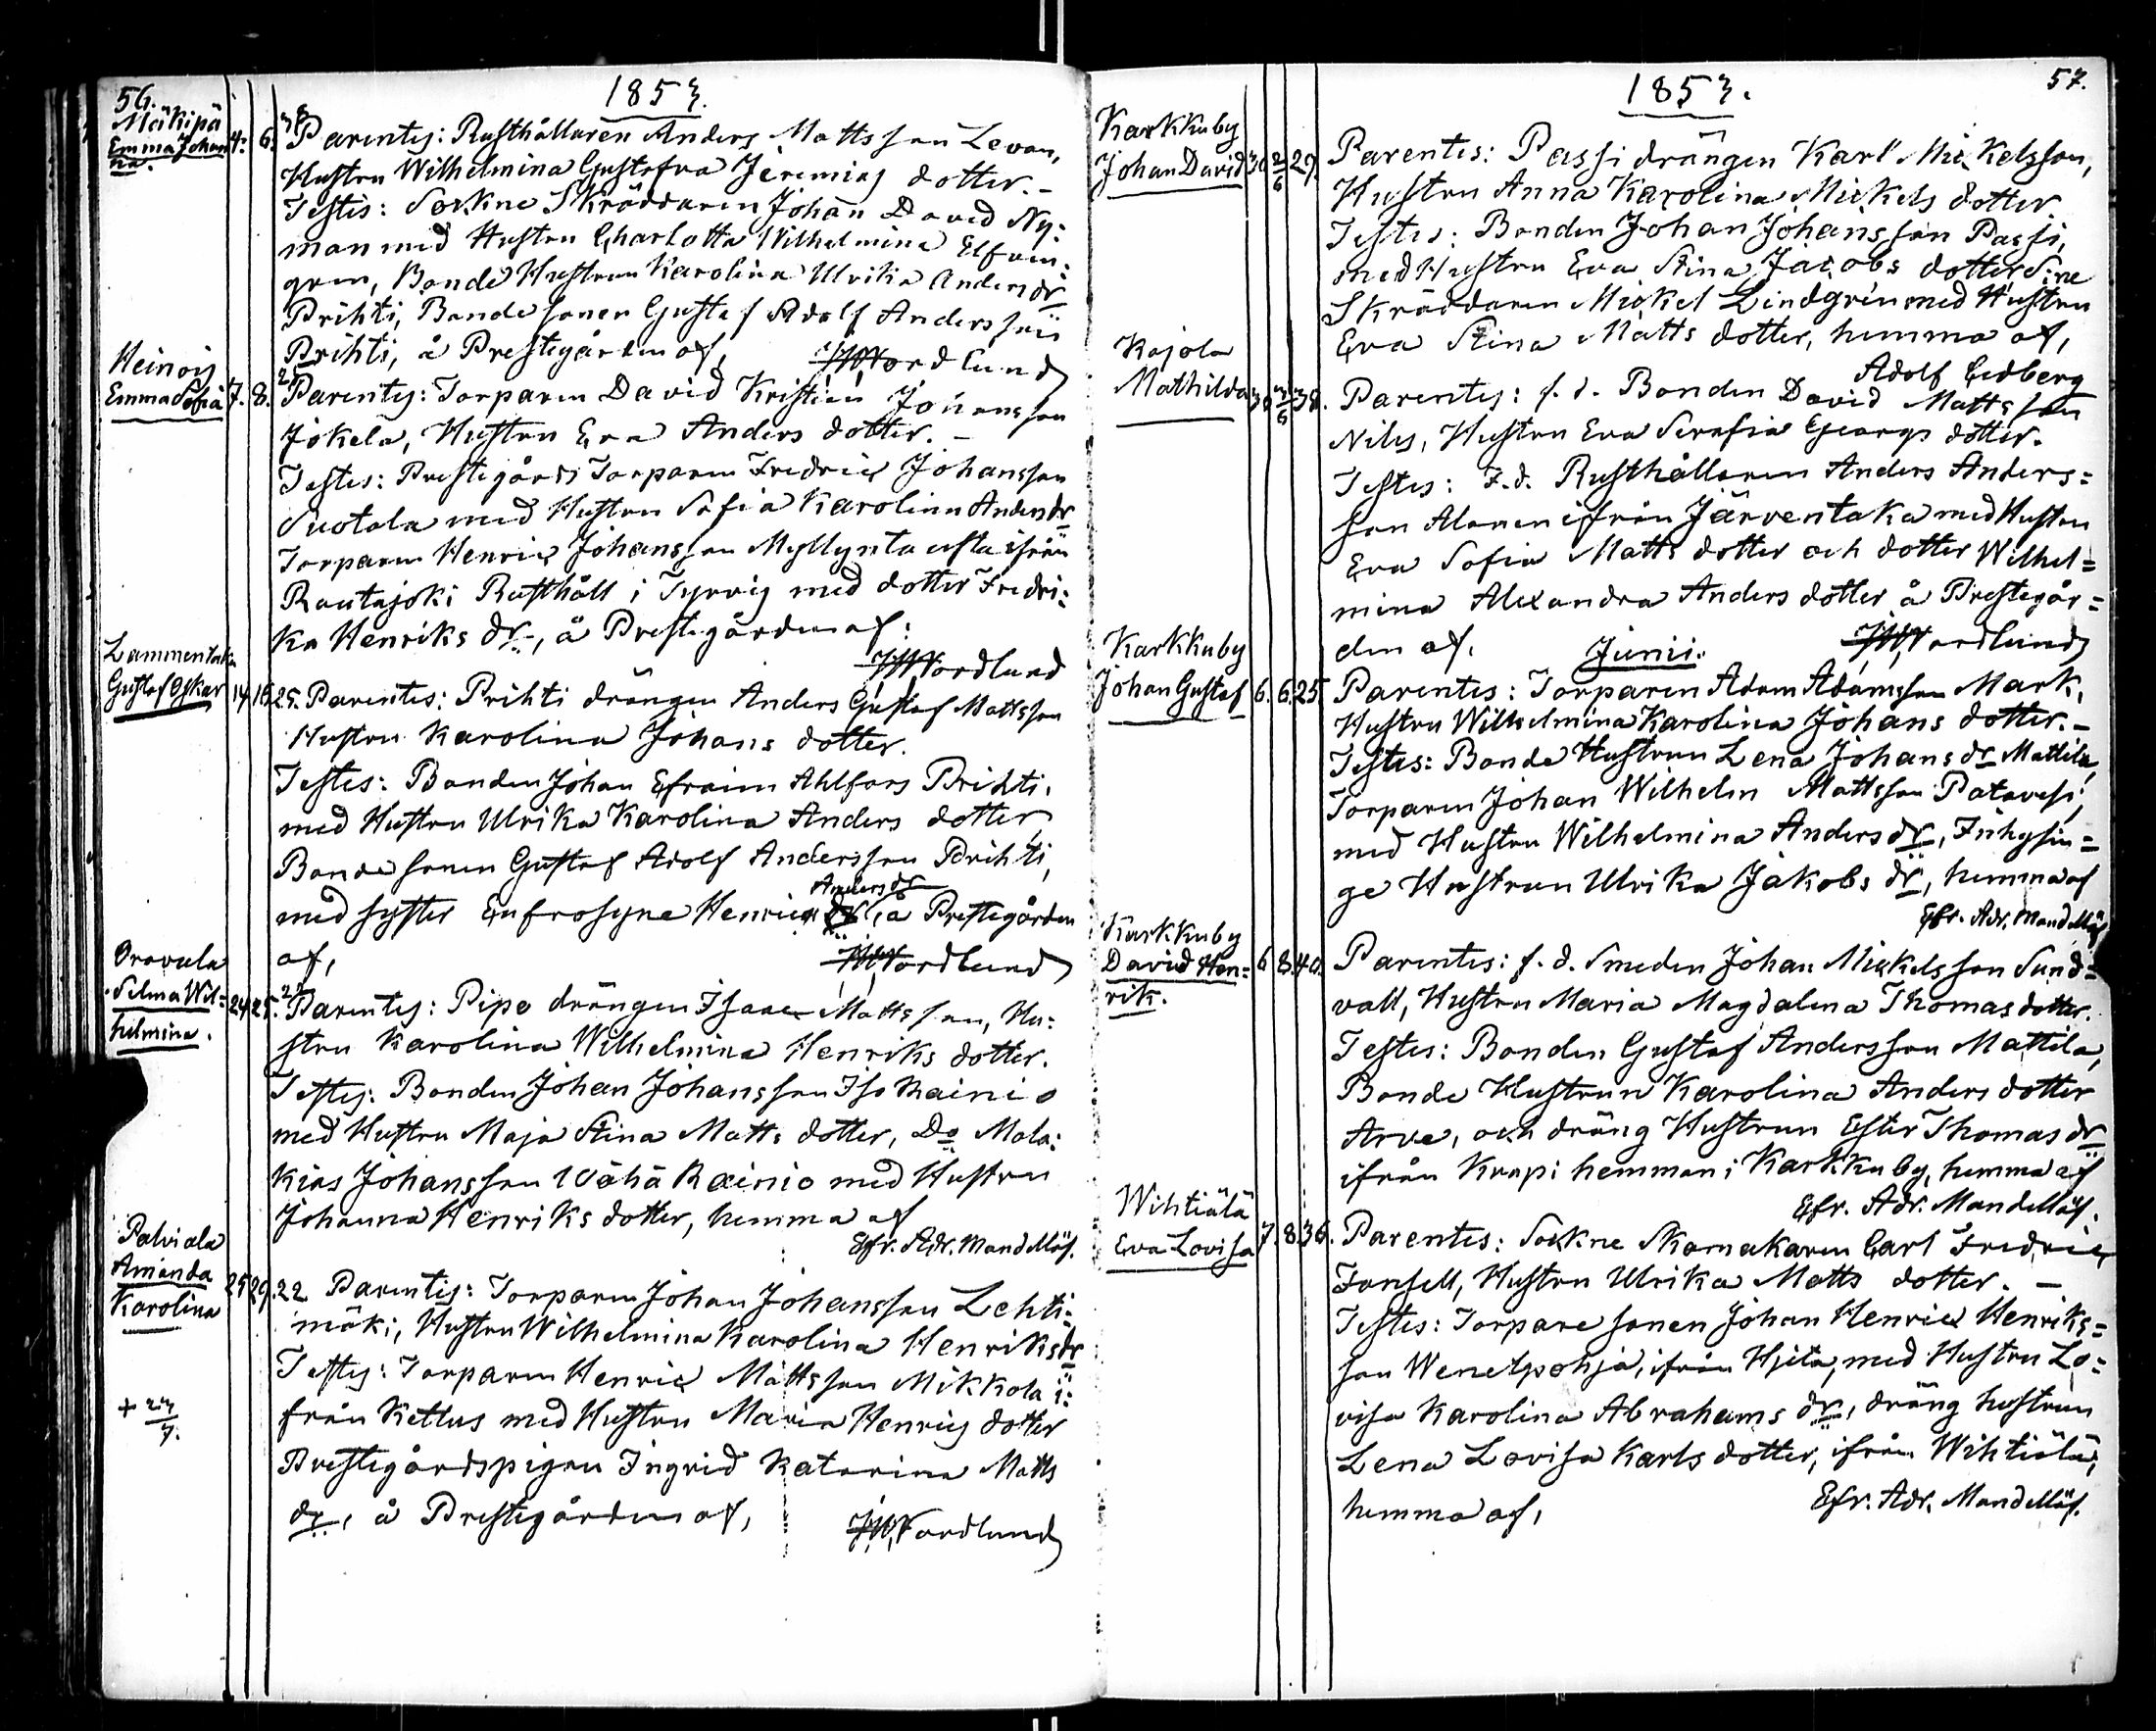 56.
1853.
Mäkipä
Emma Johan
na.
4. 6. 38
Parentes: Rusthållaren Anders Mattsson Levan,
Hustru Wilhelmina Gustafva Jeremias dotter. –
Testes: Sockne Skräddaren Johan David Ny:
man med Hustru Charlotta Wilhelmina Elfvin:
gren, Bonde Hustrun Karolina Ulrika Anders dr
Prihti, Bonde sonen Gustaf Adolf Andersson
Prihti, å Prestegården af,
JWNordlund
Heinois
Emma Sofia
7. 8.
Parentes: Torparen David Kristian Johansson
Jokela, Hustru Eva Anders dotter. –
Testes: Prestegårds Torparen Fredric Johansson
Suotala med Hustru Sofia Karolina Anders dr
Torparen Henric Johansson Myllynta usta ifrån
Rautajoki Rusthåll i Tyrvis med dotter Fredri:
ka Henriks dr, å Prestegården af:
JWNordlund
Lammentaka
Gustaf Oskar
14. 15. 25.
Parentes: Prihti drängen Anders Gustaf Mattsson
Hustru Karolina Johans dotter.
Testes: Bonden Johan Efraim Ahlfors Prihti,
med Hustru Ulrika Karolina Anders dotter,
Bonde sonen Gustaf Adolf Andersson Prihti,
Anders dr
med syster Eufrosyne Henrica, å Prestegården
af,
JWNordlund
Oravala
Selma Wil=
helmina.
24 25.
Parentes: Pipo drängen Isaac Mattsson, Hu:
stru Karolina Wilhelmina Henriks dotter.
Testes: Bonden Johan Johansson Iso Rainio
med Hustru Maja Stina Matts dotter, Do Mala:
kias Johansson Wähä Rainio med Hustru
Johanna Henriks dotter, hemma af
Efr. Adr. Mandellöf.
Palviala
Amanda
Karolina
25 29. 22
Parentes: Torparen Johan Johansson Lehti:
mäki, Hustru Wilhelmina Karolina Henriks dr
Testes: Torparen Henric Mattsson Mikkola i:
från Kettus med Hustru Maria Henrics dotter
Prestegårdspigan Ingrid Katarina Matts
dr, å Prestegården af,
JWNordlund
57.
1853.
Karkkuby
Johan David
30 2/6 29.
Parentes: Passi drängen Karl Mickelsson,
Hustru Anna Karolina Mickels dotter
Testes: Bonden Johan Johansson Passi,
med Hustru Eva Stina Jacobs dotter S:ne
Skräddaren Mickel Lindgrén med Hustru
Eva Stina Matts dotter, hemma af,
Adolf Hedberg
Kojola
Mathilda
30 3/6 38.
Parentes: f. d. Bonden David Mattsson
Niles, Hustru Eva Serafia Georgs dotter.
Testes: F. d. Rusthållaren Anders Anders=
son Alanen ifrån Järventaka med Hustru
Eva Sofia Matts dotter och dotter Wilhel=
mina Alexandra Anders dotter å Prestegår=
den af.
JWNordlund
Junii.
Karkkuby
Johan Gustaf
6. 6. 25.
Parentes: Torparen Adam Adamsson Mark,
Hustru Wilhelmina Karolina Johans dotter. –
Testes: Bonde Hustrun Lena Johans dr Mattila,
Torparen Johan Wilhelm Mattsson Patavesi,
med Hustru Wilhelmina Anders dr, Inhysin=
ge Hustrun Ulrika Jakobs dr, hemma af
Efr. Adr. Mandellöf
Karkkuby
David Hen=
rik.
6 8. 40.
Parentes: f. d. Smeden Johan Mickelsson Sund=
vall, Hustru Maria Magdalena Thomas dotter.
Testes: Bonden Gustaf Andersson Mattila,
Bonde Hustrun Karolina Anders dotter
Arve, och dräng Hustrun Ester Thomas dr
ifrån Knapi hemman i Karkkuby, hemma af
Efr. Adr. Mandellöf.
Wihtiälä
Eva Lovisa
7. 8. 36.
Parentes: Sockne Skomakaren Carl Fredric
Fonsell, Hustru Ulrika Matts dotter. –
Testes: Torpare sonen Johan Henric Henriks=
son Wenetpohja, ifrån Hjita, med Hustru Lo=
visa Karolina Abrahams dr, dräng hustrun
Lena Lovisa Karls dotter, ifrån Wihtiälä,
hemma af,
Efr. Adr. Mandellöf.
+ 23/7.